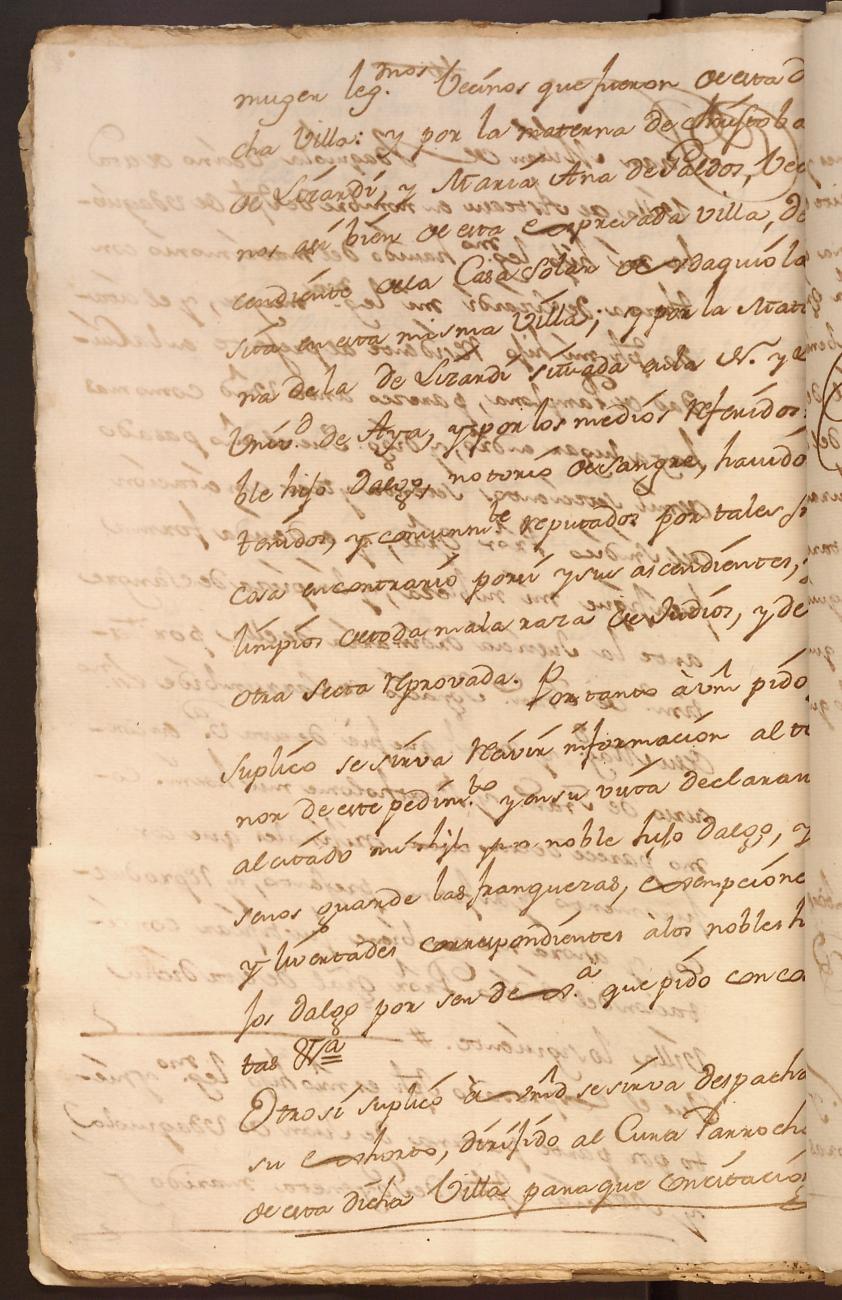 muger leg.mos Vecinos que fueron de esta d
cha Villa: y por la materna de Christoba
de Lizardi, y Maria Ana de Paldos, Vec
nos así bien de esta expresada villa, de
cendiente de la Casa Solar de Vdaquiola
sita en esta misma Villa; y por la Mate
na de la de Lizardi situada en la N. y L
Univ.d de Aya, y por los medios referidos
ble hijo dalgo, notorio de Sangre, havido
tenidos, y comunm.te reputados por tales si
cosa en contrario por sí y sus ascendientes,
limpios de toda mala raza de Judios, y de
otra secta reprovada. Por tanto à Vm pido
suplico se sirva recivir informacion al te
nor de este pedim.to y en su vista declaran
al citado mi hijo por noble hijo dalgo, y
senos guarde las franquezas, exempcione
y livertades correspondientes à los nobles h
jos dalgo por ser de x.a que pido con co
tas &a
Otrosi suplico à Vmd se sirva despacha
su exhorto, dirijido al Cura Parrocho
de esta dicha Villa para que con citacion